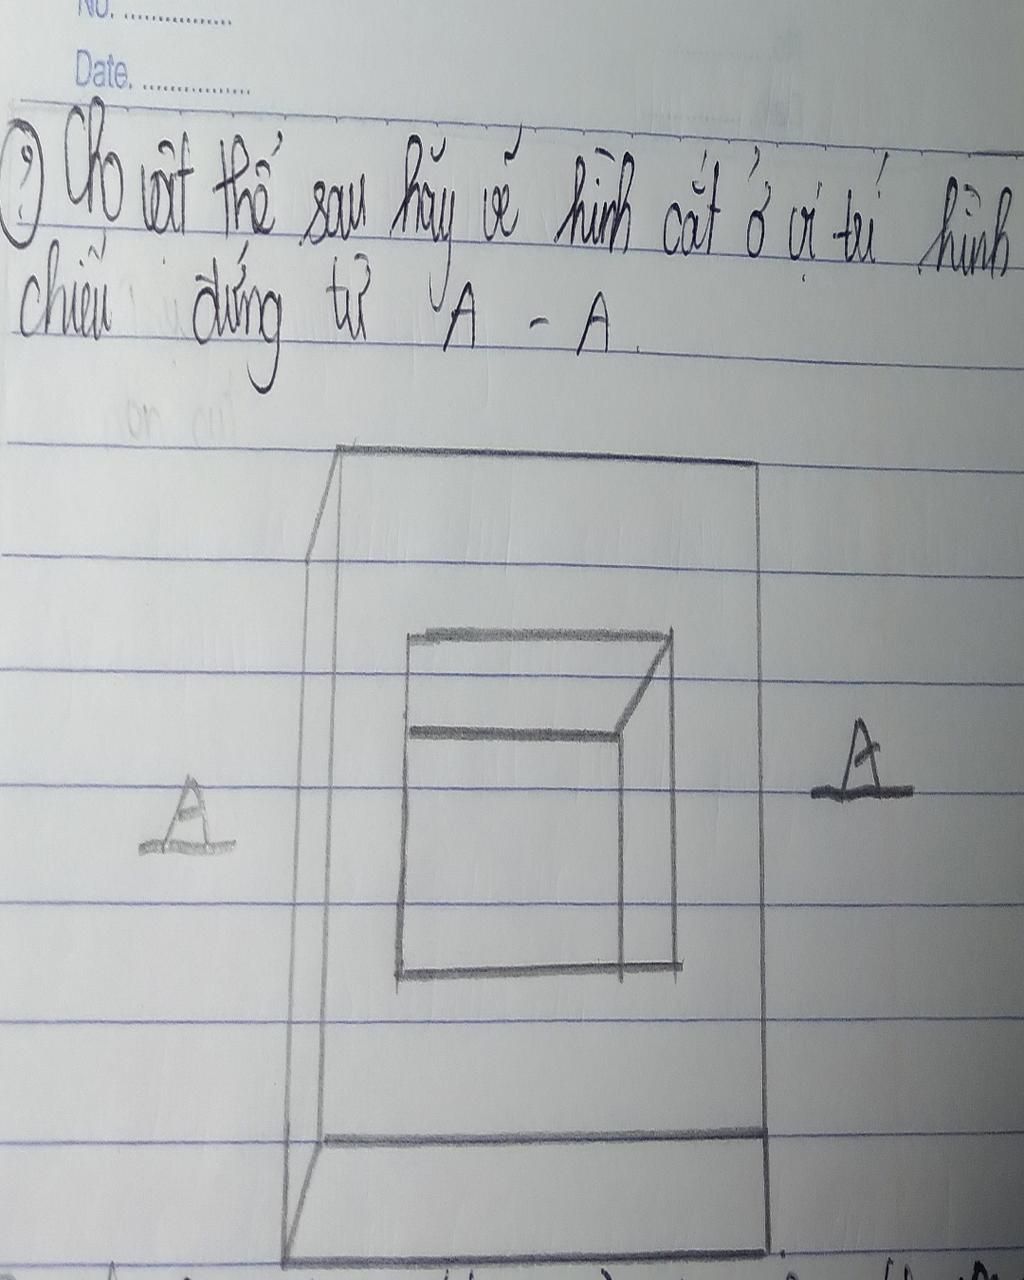 No. ................
Date. ................
?) Cho vật thể sau hãy vẽ hình cắt ở vị trí hình
chiếu đứng từ A - A.
A
A